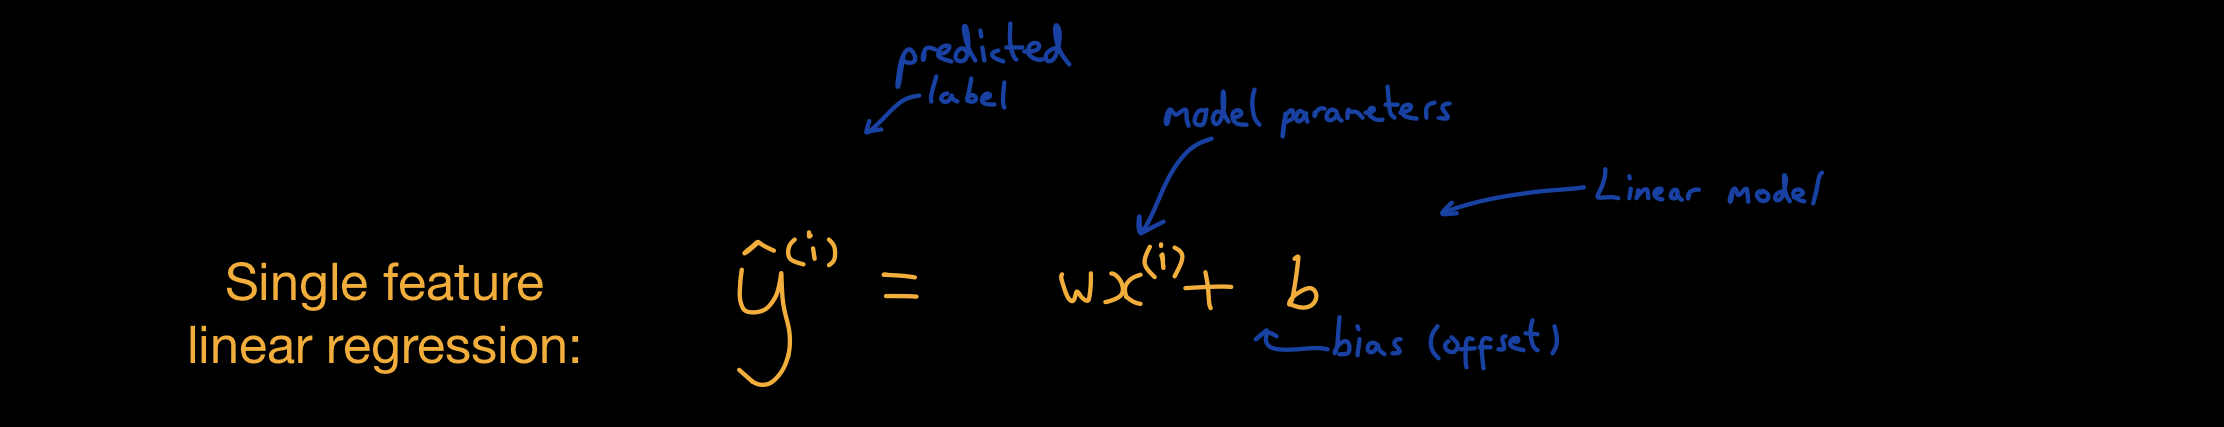 predicted
label
model parameters
Linear model
Single feature
linear regression:
ŷ⁽ⁱ⁾ = wx⁽ⁱ⁾ + b
bias (offset)